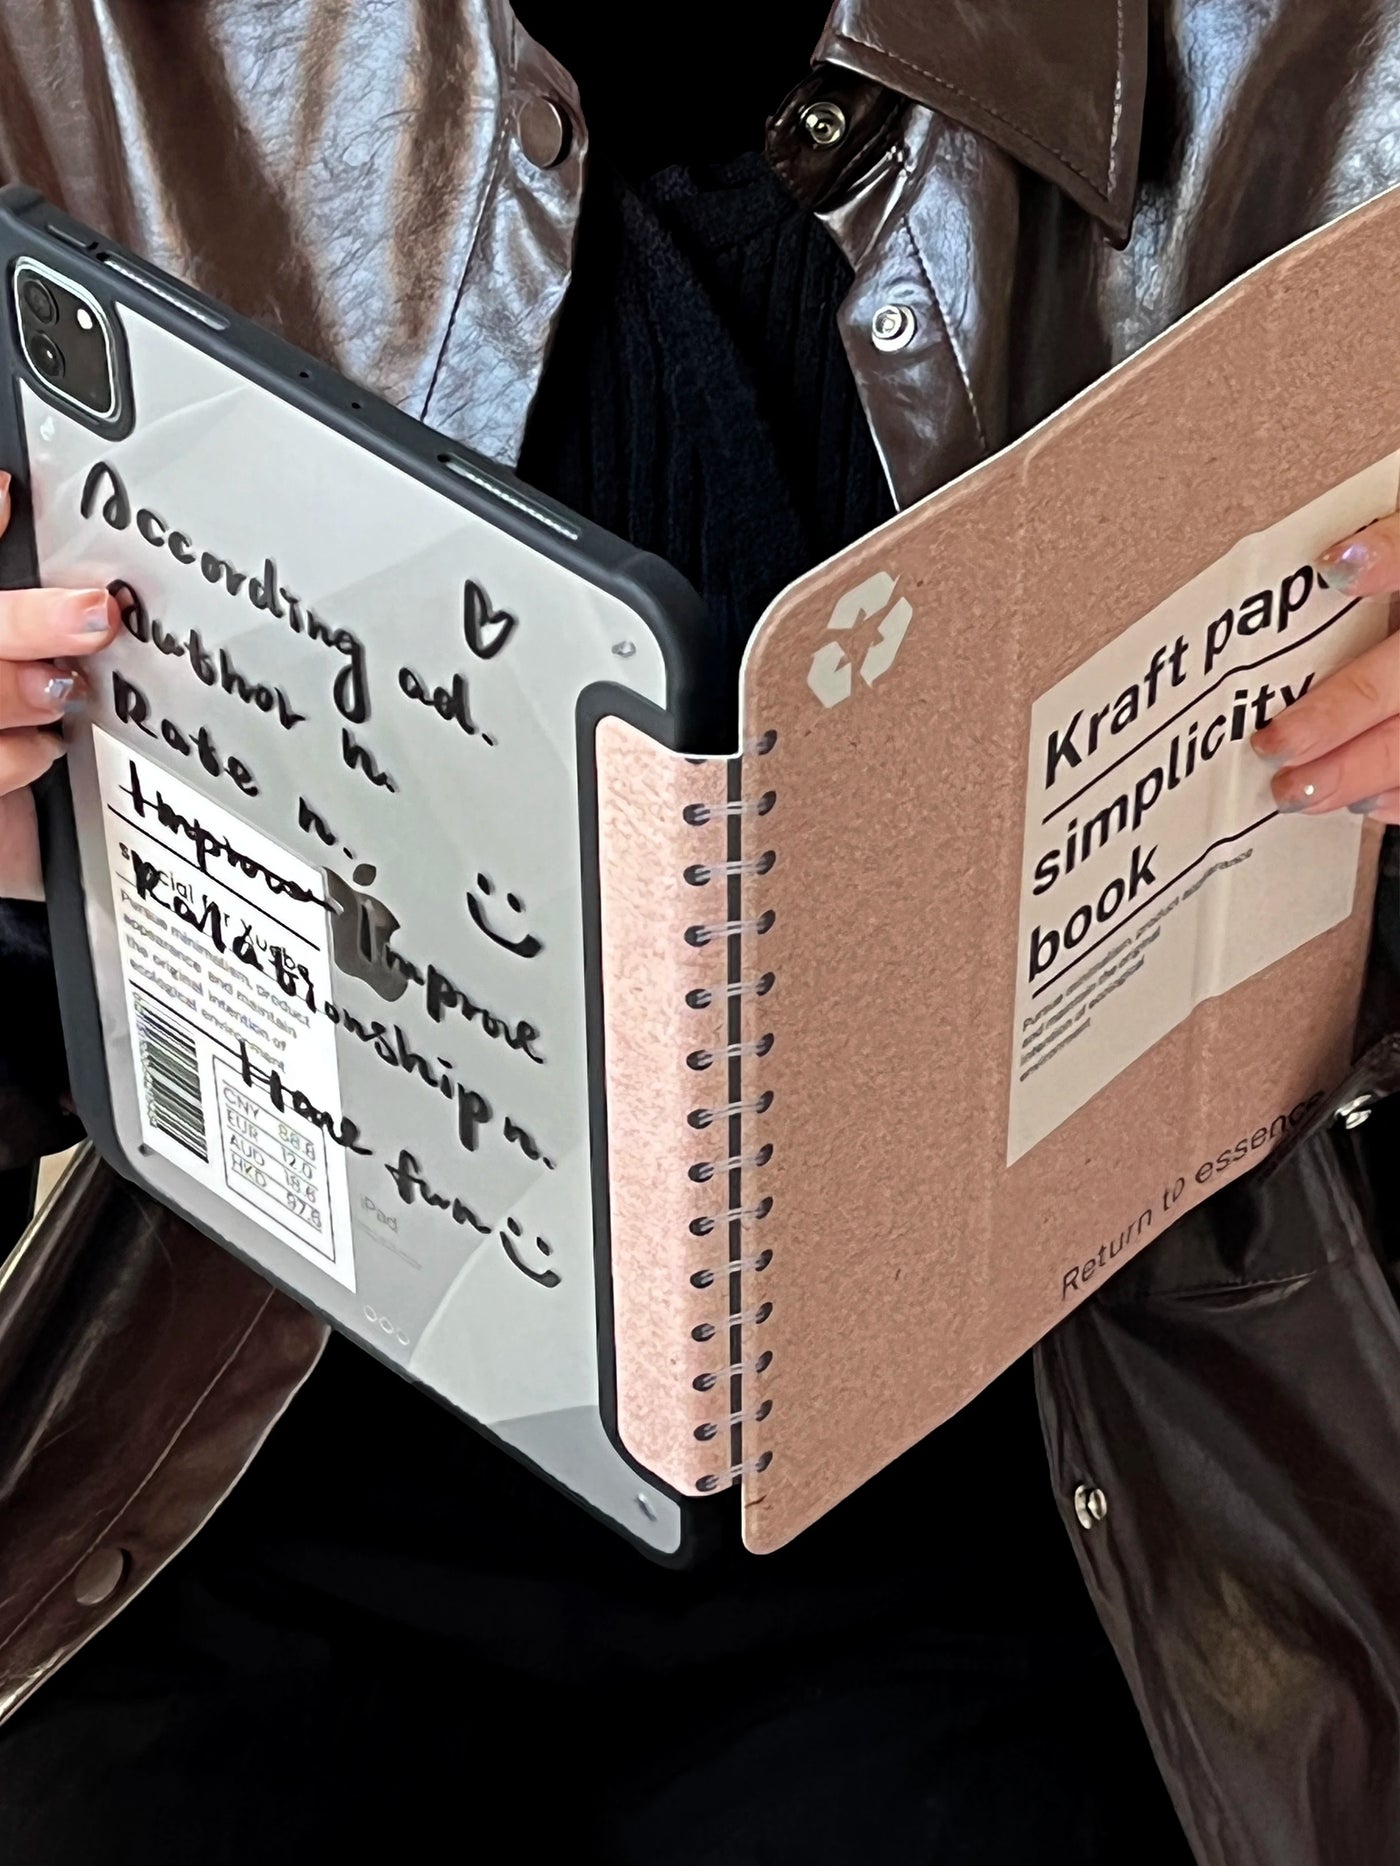 According ad.
Author n.
Rate n.
Improve
Improve
Relationship n.
Have fun
special for Xueba
Pursue minimalism, product
appearance and maintain
the original intention of
ecological environment
CNY 88.8
EUR 12.0
AUD 18.6
HKD 97.6
iPad
Kraft pape
simplicity
book
Pursue minimalism, product appearance
and maintain the original
intention of ecological
environment
Return to essence